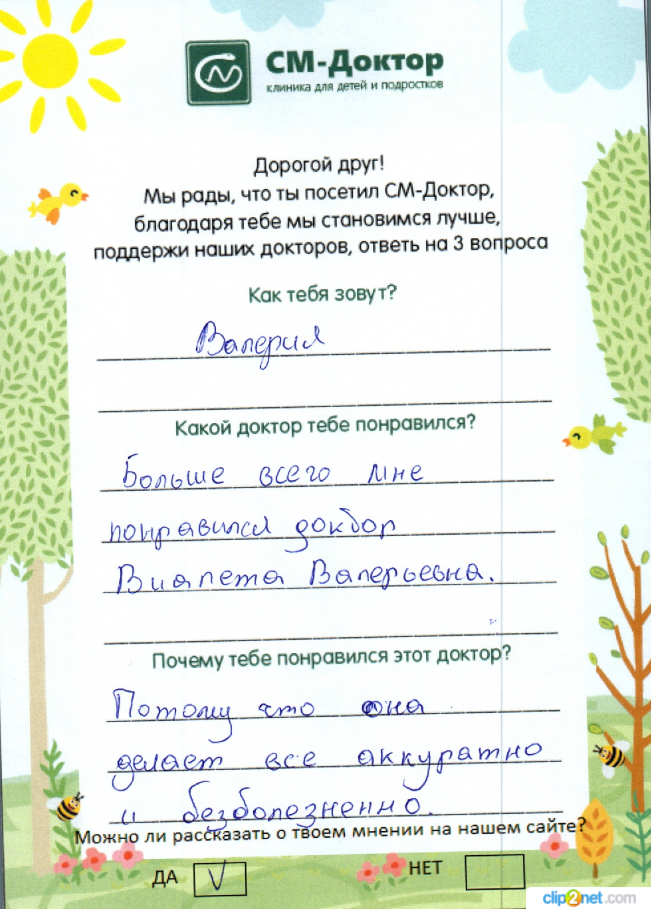 СМ-Доктор
клиника для детей и подростков
Дорогой друг!
Мы рады, что ты посетил СМ-Доктор,
благодаря тебе мы становимся лучше,
поддержи наших докторов, ответь на 3 вопроса
Как тебя зовут?
Валерия
Какой доктор тебе понравился?
Больше всего мне
понравился доктор
Виалета Валерьевна.
Почему тебе понравился этот доктор?
Потому что она
делает все аккуратно
и безболезненно.
Можно ли рассказать о твоем мнении на нашем сайте?
ДА V НЕТ
clip2net.com